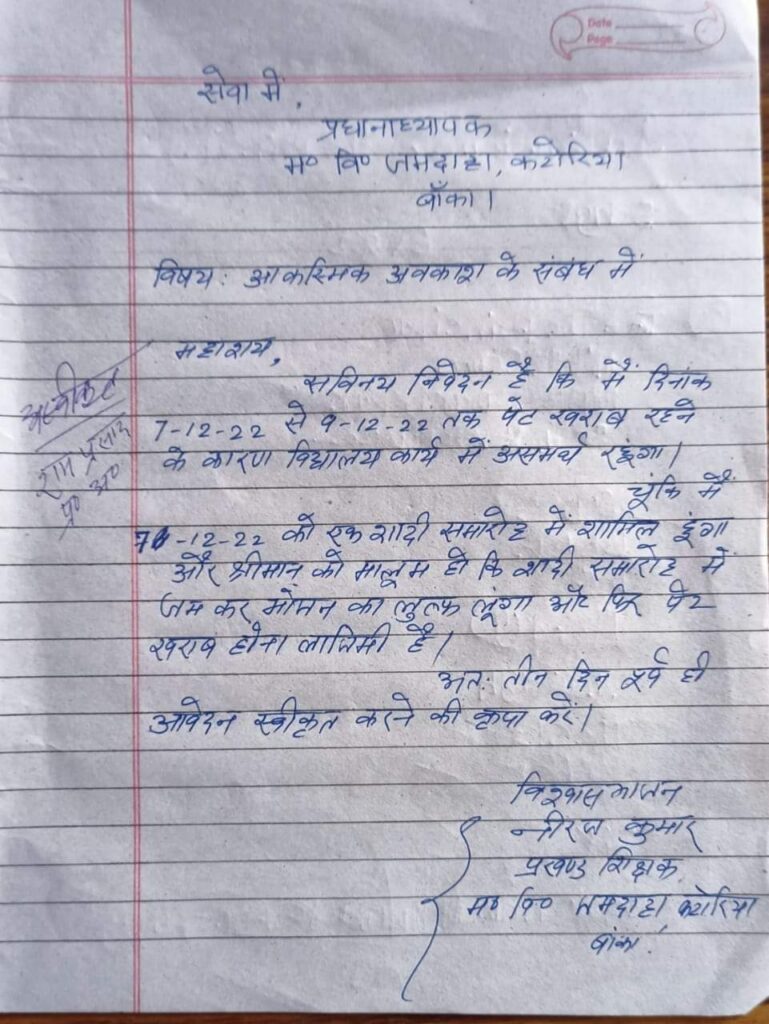 Date
Page
सेवा में,
प्रधानाध्यापक
म० वि० जमदाहा, कटोरिया
बाँका।
विषय: आकस्मिक अवकाश के संबंध में
महाशय,
सविनय निवेदन है कि मैं दिनांक
7-12-22 से 9-12-22 तक पेट खराब रहने
के कारण विद्यालय कार्य में असमर्थ रहूंगा।
चूंकि मैं
-12-22 को एक शादी समारोह में शामिल हूंगा
और श्रीमान् को मालूम हो कि शादी समारोह में
जम कर भोजन का लुत्फ लूंगा और फिर पेट
खराब होना लाजिमी है।
अतः तीन दिन पूर्व ही
आवेदन स्वीकृत करने की कृपा करें।
राम प्रसाद
प्र० अ०
विश्वासभाजन
नीरज कुमार
प्रखण्ड शिक्षक
म० वि० जमदाहा, कटोरिया
बांका।